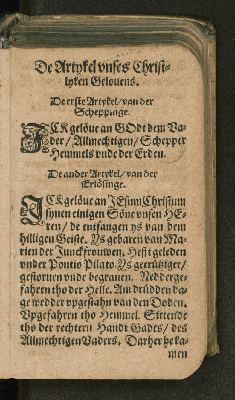 De Artykel vnses Christ-
lyken Gelouens.
De erste Artykel/ van der
Scheppinge.
ICK gelöue an GOdt dem Va-
der/ Allmechtigen/ Schepper
Hemmels vnde der Erden.
De ander Artykel/ van der
Erlösinge.
ICK gelöue an JEsum Christum
synen einigen Söne vnsen HE-
ren/ de entfangen ys van dem
hilligen Geiste. Ys gebaren van Ma-
rien der Junckfrouwen. Hefft geleden
vnder Pontio Pilato. Ys gecrütziget/
gestoruen vnde begrauen. Nedderge-
fahren tho der Helle. Am drüdden da-
ge wedder vpgestahn van den Doden.
Vpgefahren tho Hemmel. Sittende
tho der rechtern Handt Gades/ des
Allmechtigen Vaders. Darher he ka-
men